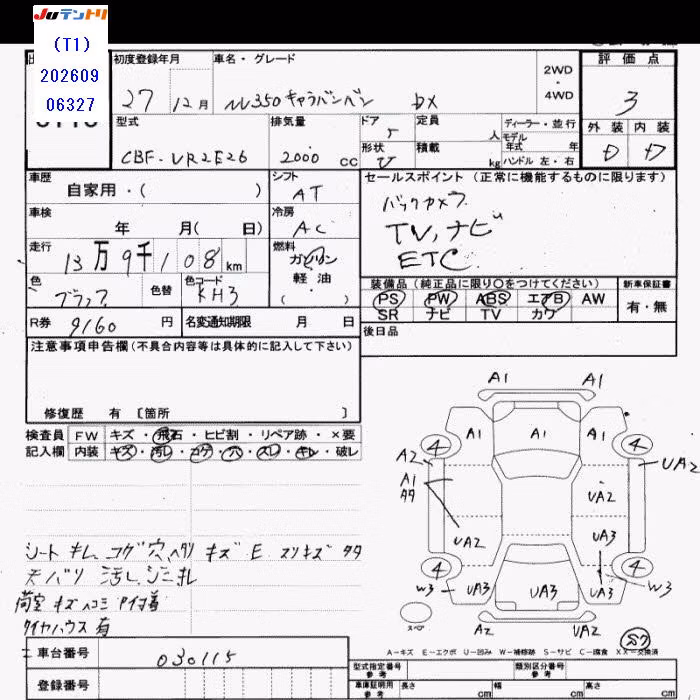 Juテントリ
(T1)
202609
06327
初度登録年月
27 12月
車名・グレード
NV350キャラバンバン DX
2WD
・
4WD
評価点
3
外装 内装
D D
型式
CBF-VR2E26
排気量
2000 cc
ドア
5
形状
V
定員 人
積載 kg
ディーラー・並行
モデル
年式 年
ハンドル 左・右
車歴
自家用・( )
車検
年 月( 日)
走行
13万9千108km
色
ブラック
色替
色コード
KH3
R券
9160 円
名変通知期限 月 日
シフト
AT
冷房
AC
燃料
ガソリン
軽油
( )
セールスポイント(正常に機能するものに限ります)
バックカメラ
TV,ナビ
ETC
装備品(純正品に限り○をつけてください)
PS PW ABS エアB AW
SR ナビ TV カワ
新車保証書
有・無
後日品
注意事項申告欄(不具合内容等は具体的に記入して下さい)
修復歴 有 〔箇所 〕
検査員 FW キズ・飛石・ヒビ割・リペア跡・×要
記入欄 内装 キズ・汚レ・コゲ・穴・スレ・キレ・破レ
シート キレ コゲ 穴 ヘタリ キズ E スリキズ タタ
天バリ 汚レ シミ キレ
荷室 キズ ヘコミ
タイヤハウス 有
A1 A1
A1 A1 A1
4 4
A2 UA2
A1
タタ
UA2
UA2 UA3
4 4
W3 UA3 UA3 UA3 W3
スペ
A2 UA2
A-キズ E-エクボ U-凹み W-補修跡 S-サビ C-腐食 XX-交換済
車台番号 030115
登録番号
型式指定番号 類別区分番号
車庫証明用
参考
長さ cm 幅 cm 高さ cm